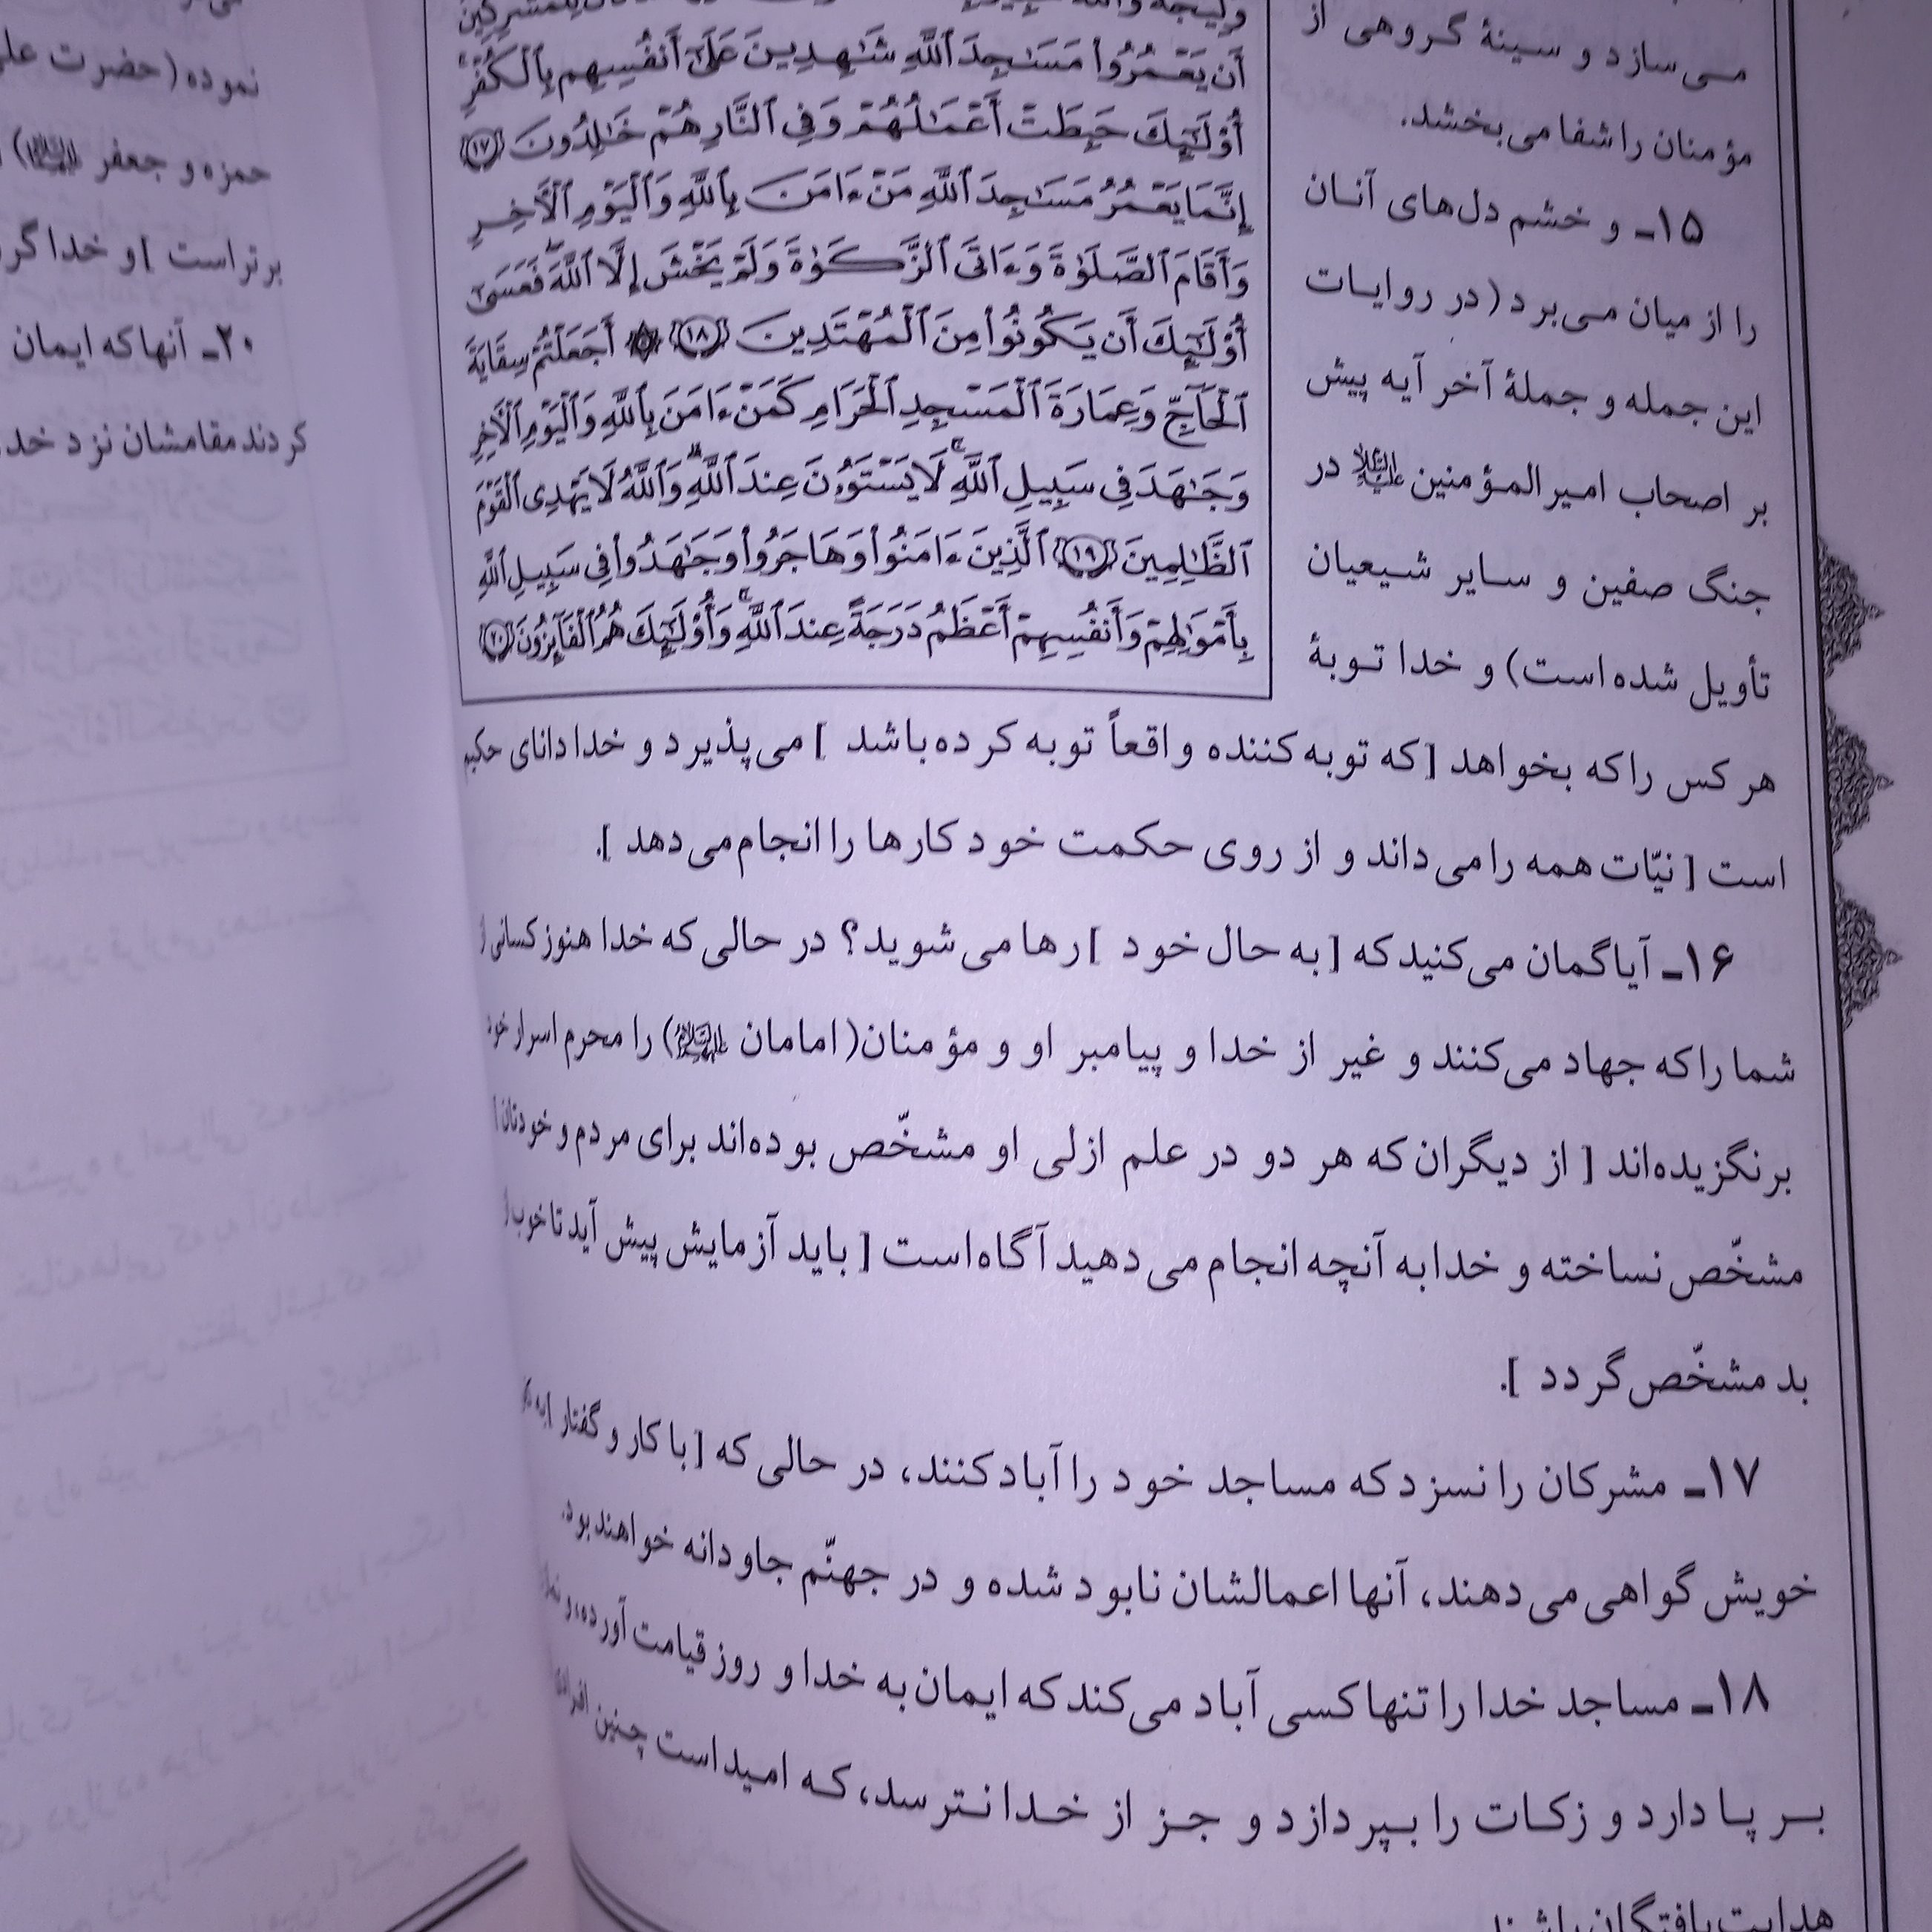 می‌سازد و سینهٔ گروهی از
مؤمنان را شفا می‌بخشد.
۱۵ـ و خشم دل‌های آنان
را از میان می‌برد (در روایات
این جمله و جملهٔ آخر آیه پیش
بر اصحاب امیرالمؤمنین علیه‌السلام در
جنگ صفین و سایر شیعیان
تأویل شده است) و خدا توبهٔ
أَن يَعْمُرُوا۟ مَسَـٰجِدَ ٱللَّهِ شَـٰهِدِينَ عَلَىٰٓ أَنفُسِهِم بِٱلْكُفْرِ ۚ
أُو۟لَـٰٓئِكَ حَبِطَتْ أَعْمَـٰلُهُمْ وَفِى ٱلنَّارِ هُمْ خَـٰلِدُونَ ﴿١٧﴾
إِنَّمَا يَعْمُرُ مَسَـٰجِدَ ٱللَّهِ مَنْ ءَامَنَ بِٱللَّهِ وَٱلْيَوْمِ ٱلْـَٔاخِرِ
وَأَقَامَ ٱلصَّلَوٰةَ وَءَاتَى ٱلزَّكَوٰةَ وَلَمْ يَخْشَ إِلَّا ٱللَّهَ ۖ فَعَسَىٰٓ
أُو۟لَـٰٓئِكَ أَن يَكُونُوا۟ مِنَ ٱلْمُهْتَدِينَ ﴿١٨﴾ ۞ أَجَعَلْتُمْ سِقَايَةَ
ٱلْحَآجِّ وَعِمَارَةَ ٱلْمَسْجِدِ ٱلْحَرَامِ كَمَنْ ءَامَنَ بِٱللَّهِ وَٱلْيَوْمِ ٱلْـَٔاخِرِ
وَجَـٰهَدَ فِى سَبِيلِ ٱللَّهِ ۚ لَا يَسْتَوُۥنَ عِندَ ٱللَّهِ ۗ وَٱللَّهُ لَا يَهْدِى ٱلْقَوْمَ
ٱلظَّـٰلِمِينَ ﴿١٩﴾ ٱلَّذِينَ ءَامَنُوا۟ وَهَاجَرُوا۟ وَجَـٰهَدُوا۟ فِى سَبِيلِ ٱللَّهِ
بِأَمْوَٰلِهِمْ وَأَنفُسِهِمْ أَعْظَمُ دَرَجَةً عِندَ ٱللَّهِ ۚ وَأُو۟لَـٰٓئِكَ هُمُ ٱلْفَآئِزُونَ ﴿٢٠﴾
هر کس را که بخواهد [که توبه کننده واقعاً توبه کرده باشد ] می‌پذیرد و خدا دانای حکیم
است [ نیّات همه را می‌داند و از روی حکمت خود کارها را انجام می‌دهد ].
۱۶ـ آیا گمان می‌کنید که [ به حال خود ] رها می‌شوید؟ در حالی که خدا هنوز کسانی از
شما را که جهاد می‌کنند و غیر از خدا و پیامبر او و مؤمنان(امامان علیهم‌السلام) را محرم اسرار خود
برنگزیده‌اند [ از دیگران که هر دو در علم ازلی او مشخّص بوده‌اند برای مردم و خودتان ]
مشخّص نساخته و خدا به آنچه انجام می‌دهید آگاه است [ باید آزمایش پیش آید تا خوب از
بد مشخّص گردد ].
۱۷ـ مشرکان را نسزد که مساجد خود را آباد کنند، در حالی که [ با کار و گفتار
خویش گواهی می‌دهند، آنها اعمالشان نابود شده و در جهنّم جاودانه خواهند بود.
۱۸ـ مساجد خدا را تنها کسی آباد می‌کند که ایمان به خدا و روز قیامت آورده، و
بر پا دارد و زکات را بپردازد و جز از خدا نترسد، که امید است چنین
هدایت یافتگان باشند.
نموده (حضرت علی
حمزه و جعفر علیهم‌السلام)
برتر است ] و خدا
۲۰ـ آنها که ایمان
کردند مقامشان نزد